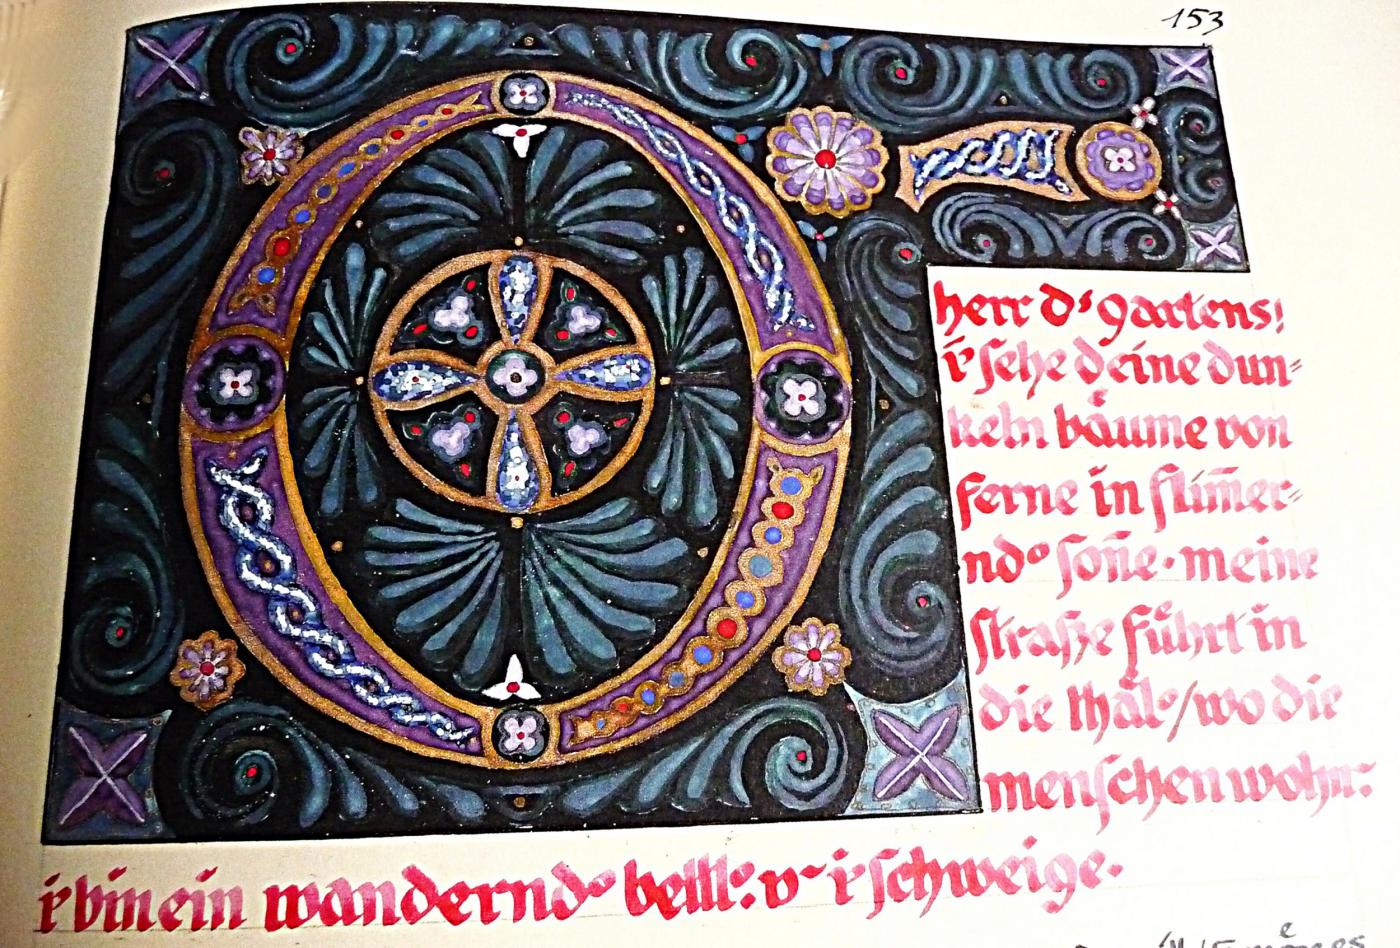 153
O
herr dˢ gartens!
iͬ sehe deine dun⸗
keln baͤume von
ferne in flim̄er⸗
ndᵒ son̄e · meine
straße fuͤhrt in
die thälᵒ/wo die
menschen wohn:
iͬ bin ein wandernd° bettl°: v~ iͬ schweige ·